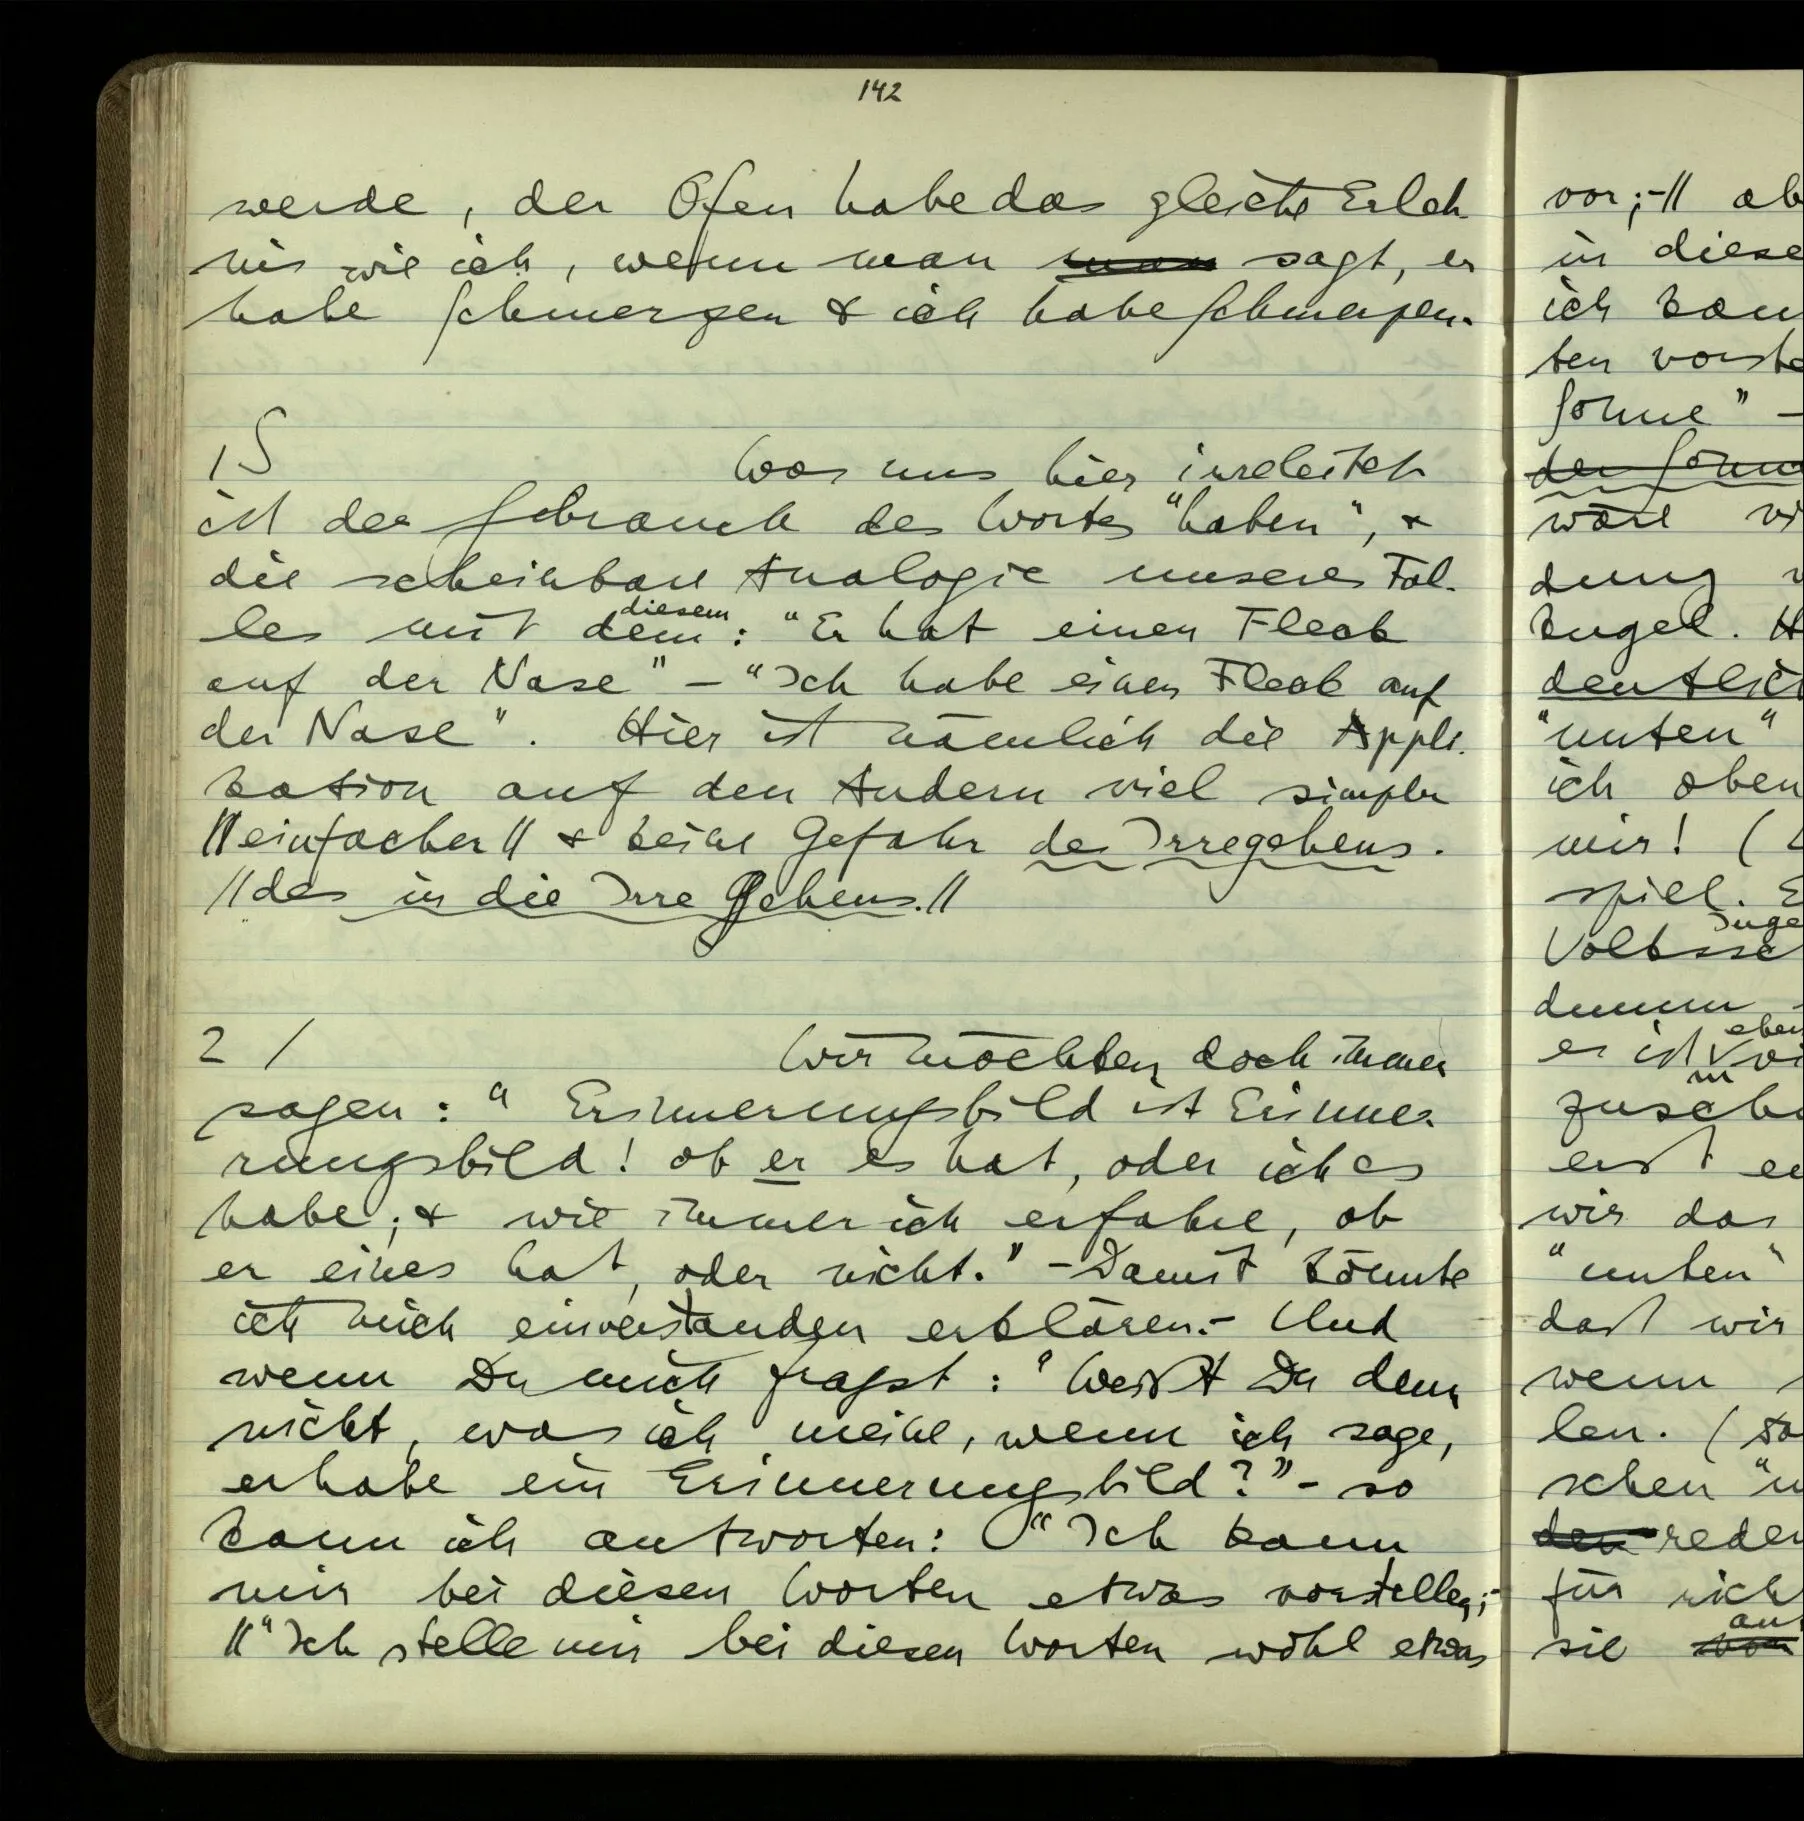 142
werde, der Ofen habe das gleiche Erleb-
nis wie ich, wenn man man sagt, er
habe Schmerzen & ich habe Schmerzen.
1 S
Was uns hier irreleitet
ist der Gebrauch des Wortes "haben", &
die scheinbare Analogie unseres Fal-
diesem
les mit dem: "Er hat einen Fleck
auf der Nase" – "Ich habe einen Fleck auf
der Nase". Hier ist nämlich die Appli-
kation auf den Andern viel simpler
//einfacher// & keine Gefahr des Irregehens.
//des in die Irre Gehens.//
2 /
Wir möchten doch immer
sagen: "Erinnerungsbild ist Erinne-
rungsbild! ob er es hat, oder ich es
habe; & wie immer ich erfahre, ob
er eines hat, oder nicht." – Damit könnte
ich mich einverstanden erklären. – Und
wenn Du mich fragst: "Weißt Du denn
nicht, was ich meine, wenn ich sage,
er habe ein Erinnerungsbild?" – so
kann ich antworten: "Ich kann
mir bei diesen Worten etwas vorstellen;–
//"Ich stelle mir bei diesen Worten wohl etwas
vor;–// ab
in diese
ich kan
ten vorste
Sonne" –
der Sonn
wäre vi
dung
kugel. H
deutlich
"unten"
ich oben
mir! (
spiel. E
Juge
Volkssc
dumm
eben
er ist
in
zuseh
erst
wir das
"unten"
daß wir
wenn
len. (
schen "u
den reden
für rich
auf
sie von